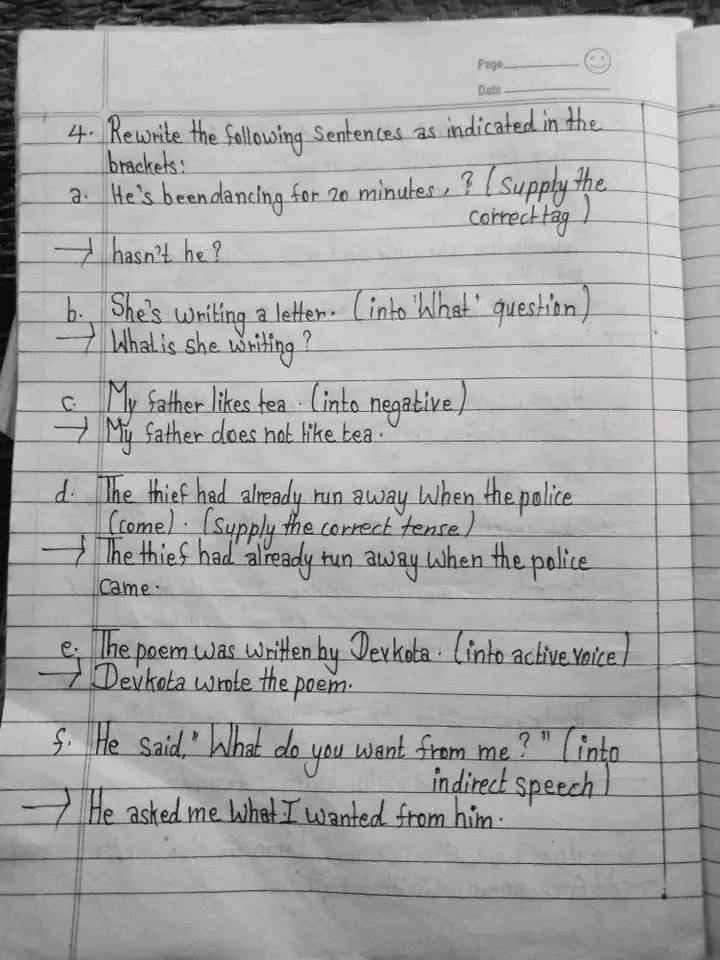 Page
Date
4. Rewrite the following sentences as indicated in the
brackets:
a. He's been dancing for 20 minutes, ? (Supply the
correct tag)
→ hasn't he?
b. She's writing a letter. (into 'What' question)
→ What is she writing?
c. My father likes tea. (into negative)
→ My father does not like tea.
d. The thief had already run away when the police
(come). (Supply the correct tense)
→ The thief had already run away when the police
came.
e. The poem was written by Devkota. (into active voice)
→ Devkota wrote the poem.
f. He said," What do you want from me?" (into
indirect speech)
→ He asked me what I wanted from him.